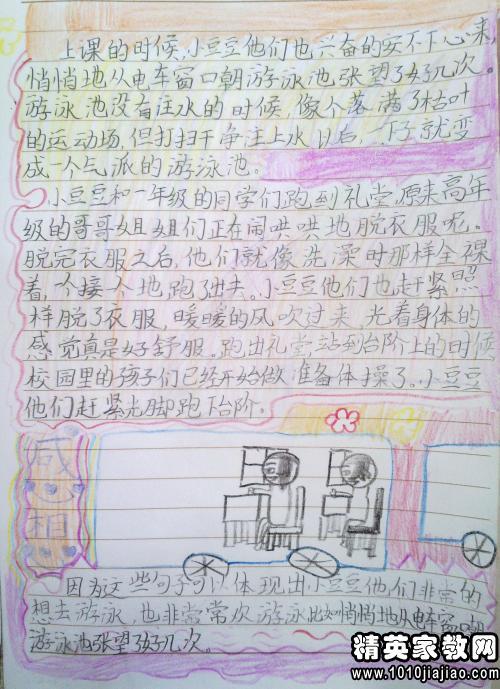 上课的时候,小豆豆他们也兴奋的安不下心来,
悄悄地从电车窗口朝游泳池张望了好几次。
游泳池没有注水的时候,像个落满了枯叶
的运动场,但打扫干净注上水以后,一下子就变
成一个气派的游泳池。
小豆豆和一年级的同学们跑到礼堂,原来高年
级的哥哥姐姐们正在闹哄哄地脱衣服呢。
脱完衣服之后,他们就像洗澡时那样全裸
着,一个接一个地跑了出去。小豆豆他们也赶紧照
样脱了衣服,暖暖的风吹过来,光着身体的
感觉真是好舒服。跑出礼堂,站到台阶上的时候
校园里的孩子们已经开始做准备体操了。小豆豆
他们赶紧光脚跑下台阶。
感想
因为这些句子可以体现出小豆豆他们非常的
想去游泳,也非常喜欢游泳比如悄悄地从电车窗口朝
游泳池张望了好几次。
精英家教网
www.1010jiajiao.com